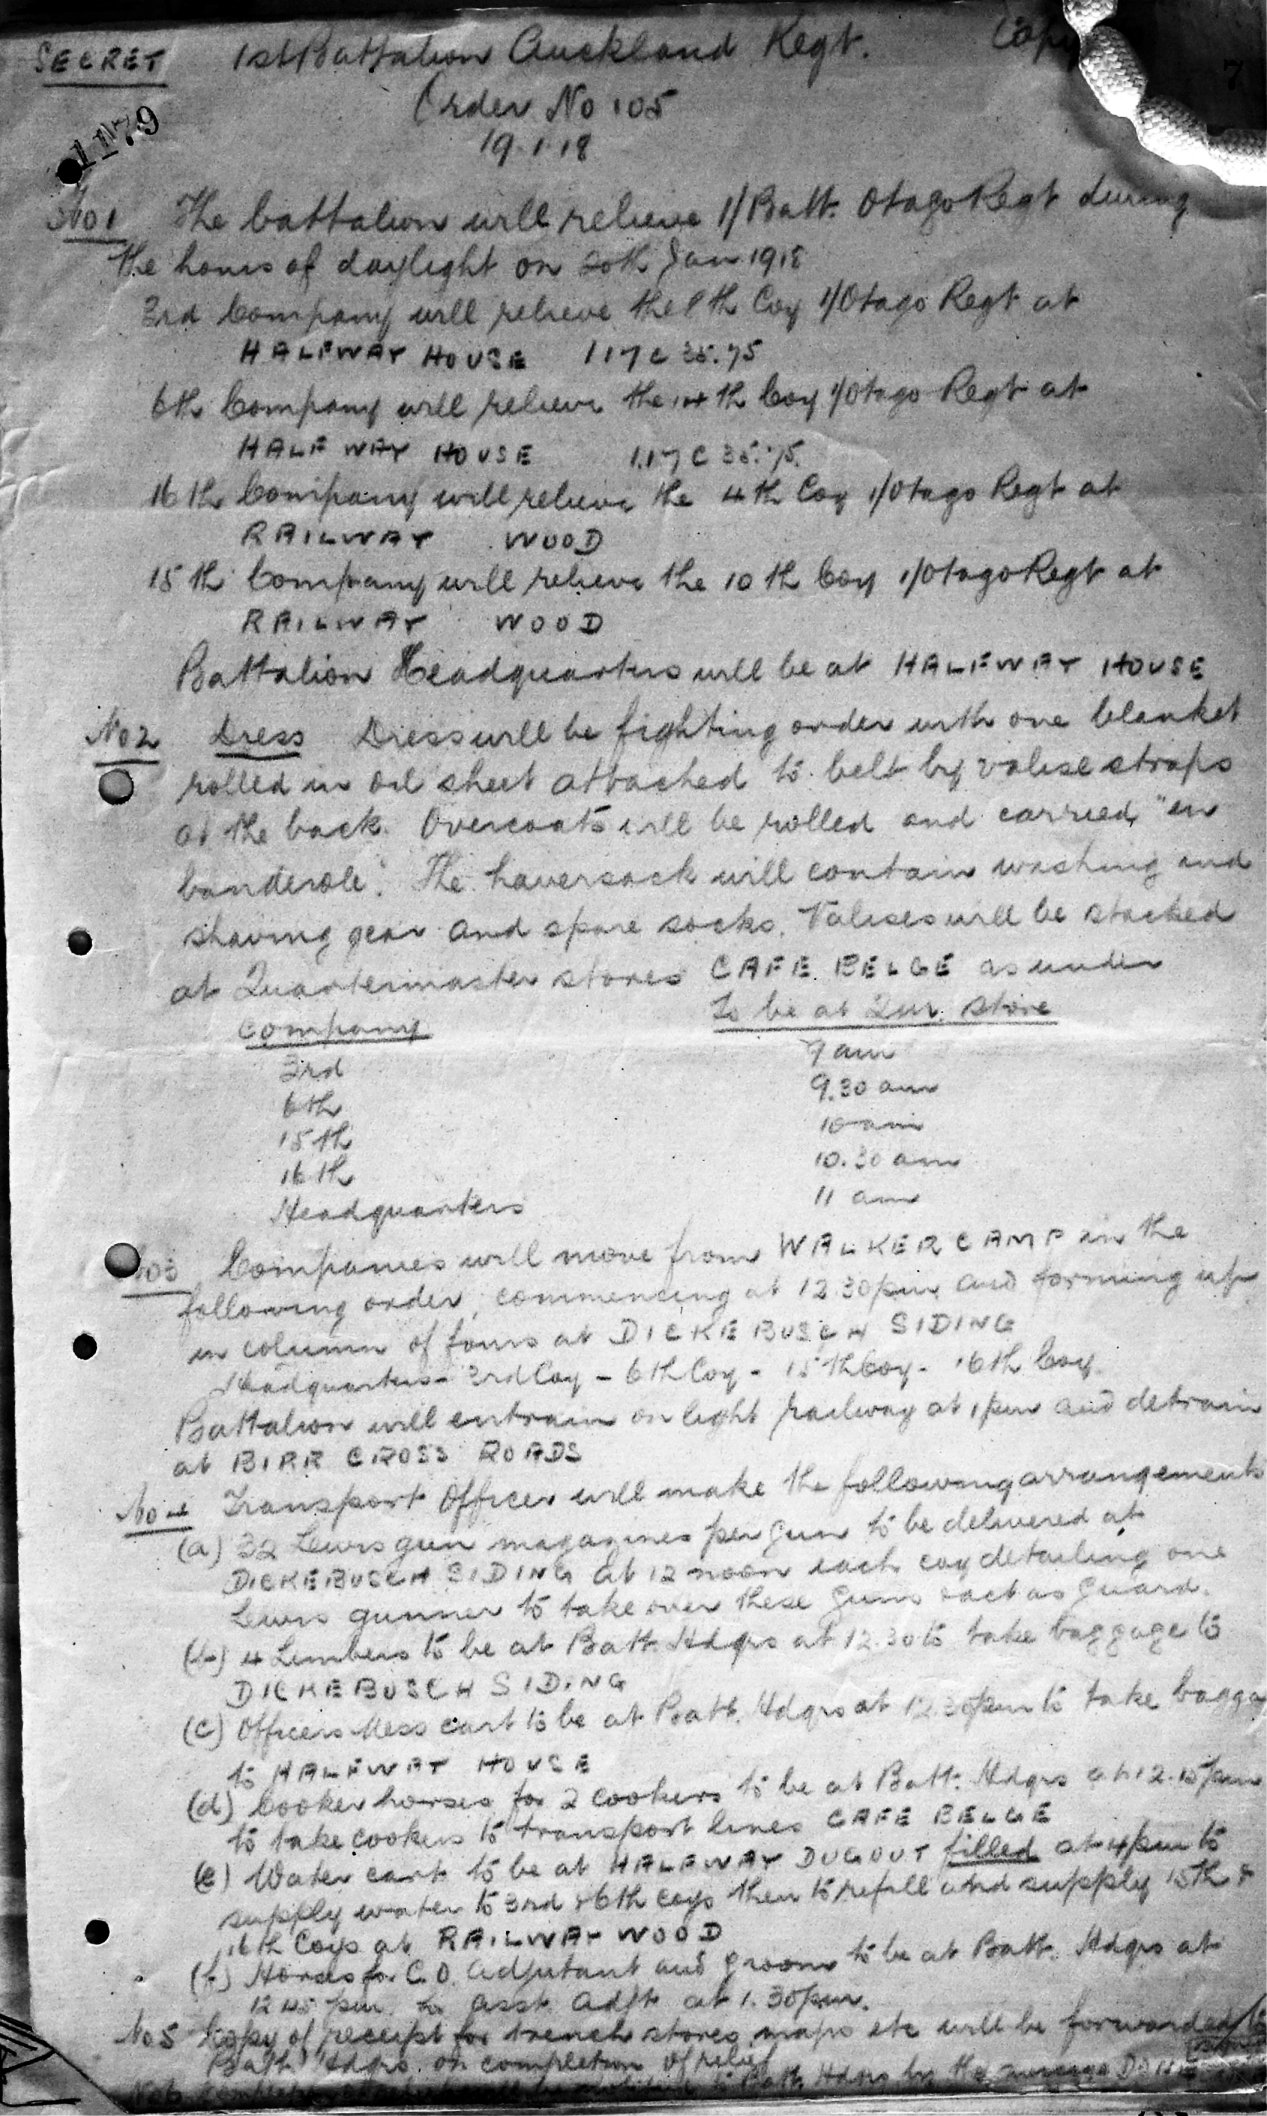 SECRET 1st Battalion Auckland Regt. Copy 7
Order No 105
1179
19.1.18
No 1 The battalion will relieve 1/Batt. Otago Regt during
the hours of daylight on 20th Jan 1918
3rd Company will relieve the 8th Coy 1/Otago Regt at
HALFWAY HOUSE I 17 c 35.75
6th Company will relieve the 14th Coy 1/Otago Regt at
HALFWAY HOUSE I.17 C 35.75.
16th Company will relieve the 4th Coy 1/Otago Regt at
RAILWAY WOOD
15th Company will relieve the 10th Coy 1/Otago Regt at
RAILWAY WOOD
Battalion Headquarters will be at HALFWAY HOUSE
No 2 Dress Dress will be fighting order with one blanket
rolled in oil sheet attached to belt by valise straps
at the back. Overcoats will be rolled and carried "en
banderole". The haversack will contain washing and
shaving gear and spare socks. Valises will be stacked
at Quartermaster stores CAFE BELGE as under
Company To be at Qur. Store
3rd 9 am
6th 9.30 am
15th 10 am
16th 10.30 am
Headquarters 11 am
No 3 Companies will move from WALKER CAMP in the
following order, commencing at 12.30 pm and forming up
in column of fours at DICKEBUSCH SIDING
Headquarters - 3rd Coy - 6th Coy - 15th Coy - 16th Coy.
Battalion will entrain on light railway at 1 pm and detrain
at BIRR CROSS ROADS
No 4 Transport Officer will make the following arrangements
(a) 32 Lewis gun magazines per gun to be delivered at
DICKEBUSCH SIDING at 12 noon each coy detailing one
Lewis gunner to take over these guns & act as guard.
(b) 4 Limbers to be at Batt. Hdqrs at 12.30 to take baggage to
DICKEBUSCH SIDING
(c) Officers Mess cart to be at Batt. Hdqrs at 12.30pm to take bagga
to HALFWAY HOUSE
(d) Cooker horses for 2 cookers to be at Batt. Hdqrs at 12.15pm
to take cookers to transport lines CAFE BELGE
(e) Water cart to be at HALFWAY DUGOUT filled at 4pm to
supply water to 3rd & 6th coys then to refill and supply 15th &
16th Coys at RAILWAY WOOD
(f) Horses for C.O. Adjutant and groom to be at Batt. Hdqrs at
12.45 pm. for Asst. Adjt at 1.30pm.
No 5 Copy of receipt for trench stores, maps etc will be forwarded to
Batt Hdqrs. on completion of relief
No 6 Completion of relief will be notified to Batt. Hdqrs by the message